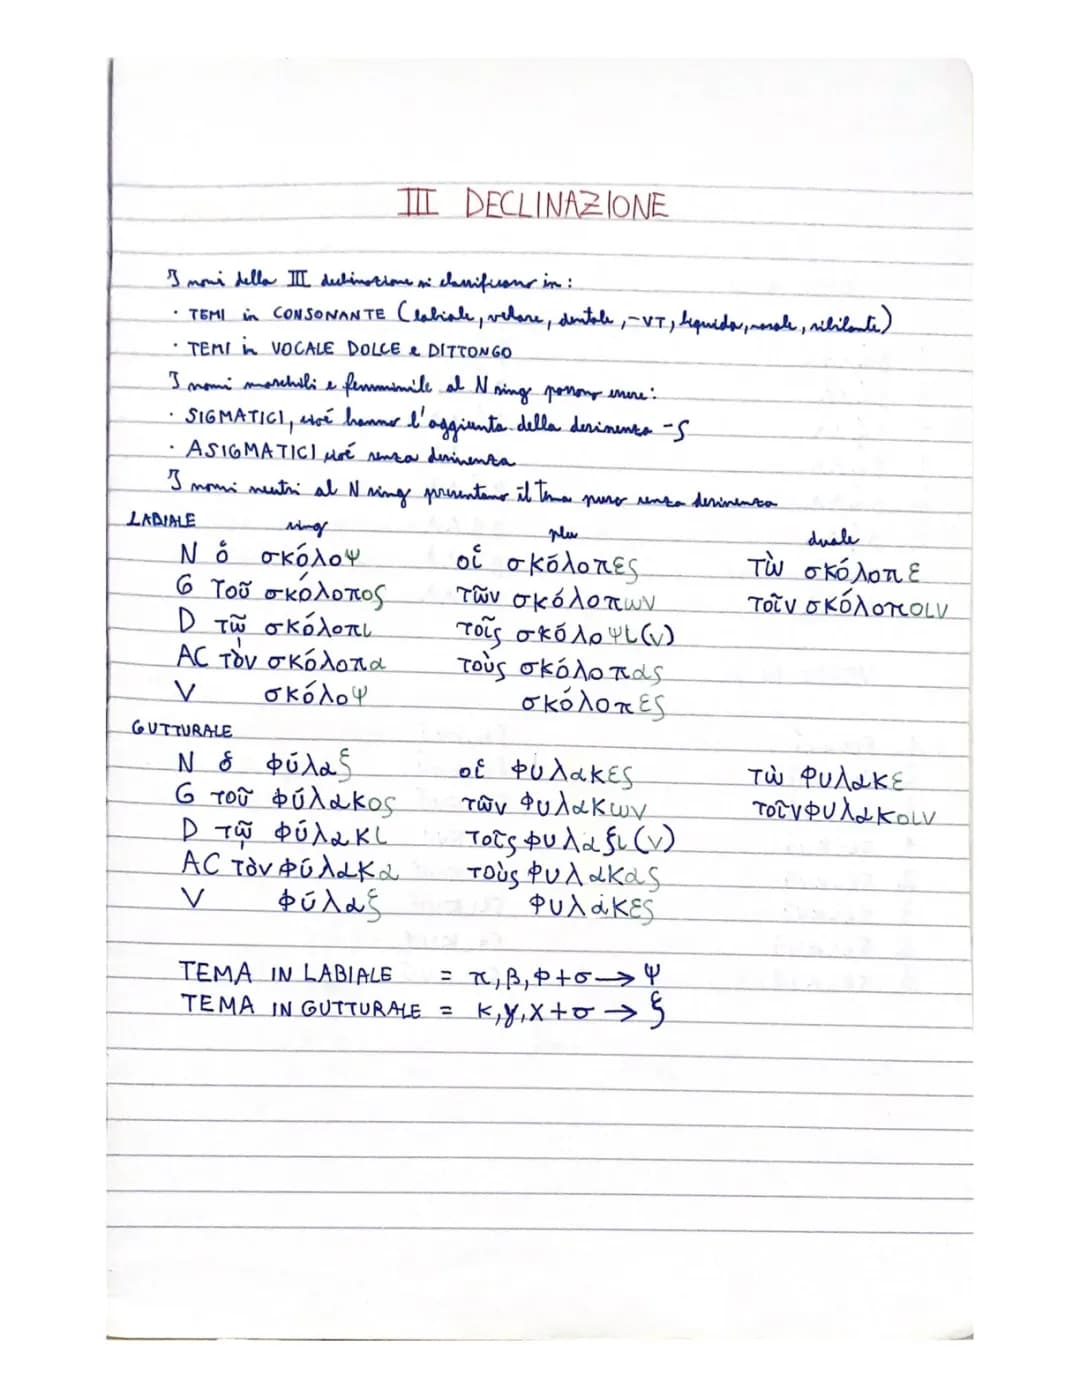 III DECLINAZIONE
I nomi della III declinazione si classificano in:
· TEMI in CONSONANTE (labiale, velare, dentale, -ντ, liquida, nasale, sibilante)
· TEMI in VOCALE DOLCE e DITTONGO
I nomi maschili e femminile al N sing possono essere:
· SIGMATICI, cioé hanno l'aggiunta della desinenza -ς
· ASIGMATICI cioé senza desinenza
I nomi neutri al N sing presentano il tema puro senza desinenza
LABIALE sing plu duale
N ὁ σκόλοψ οἱ σκόλοπες τὼ σκόλοπε
G τοῦ σκόλοπος τῶν σκόλοπων τοῖν σκόλοποιν
D τῷ σκόλοπι τοῖς σκόλοψι(ν)
AC τὸν σκόλοπα τοὺς σκόλοπας
V σκόλοψ σκόλοπες
GUTTURALE
N ὁ φύλαξ οἱ φυλακες τὼ φυλακε
G τοῦ φύλακος τῶν φυλακων τοῖν φυλακοιν
D τῷ φύλακι τοῖς φυλαξι(ν)
AC τὸν φύλακα τοὺς φυλακας
V φύλαξ φυλάκες
TEMA IN LABIALE = π, β, φ + σ → ψ
TEMA IN GUTTURALE = κ, γ, χ + σ → ξ